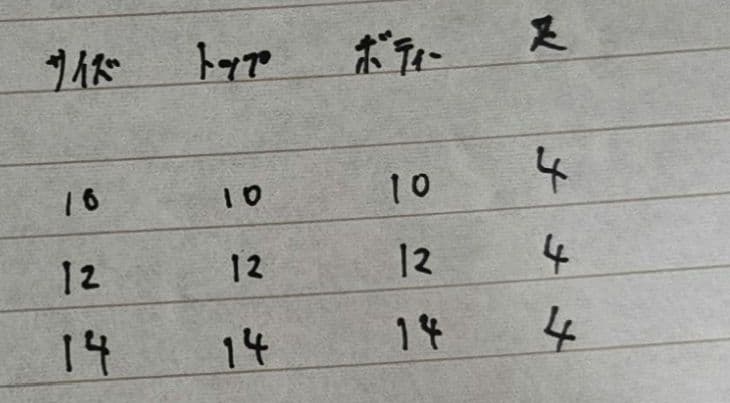 サイズ トップ ボディー 足
10 10 10 4
12 12 12 4
14 14 14 4